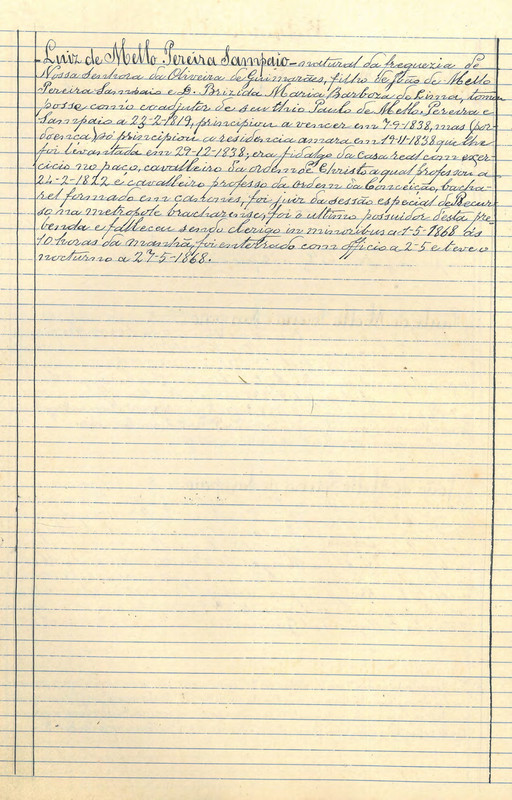 Luiz de Mello Pereira Sampaio - natural da freguezia de
Nossa Senhora da Oliveira de Guimarães, filho de João de Mello
Pereira Sampaio e D. Brizida Maria Barboza de Lima, tomou
posse como coadjutor de seu thio Paulo de Mello Pereira e
Sampaio a 23-2-1819, principiou a vencer em 7-9-1838, mas (por
doença) só principiou a residencia amara em 19-11-1838 que lhe
foi levantada em 29-12-1838; era fidalgo da casa real com exer-
cicio no paço, cavalleiro da ordem de Christo a qual professou a
24-2-1822 e cavalleiro professo da ordem da Conceição, bacha-
rel formado em canones, foi juiz da sessão especial de Recur-
so na metropole bracharense, foi o ultimo possuidor desta pre-
benda e falleceu sendo clerigo in minoribus a 1-5-1868 ás
10 horas da manhã, foi enterrado com officio a 2-5 e teve o
nocturno a 27-5-1868.